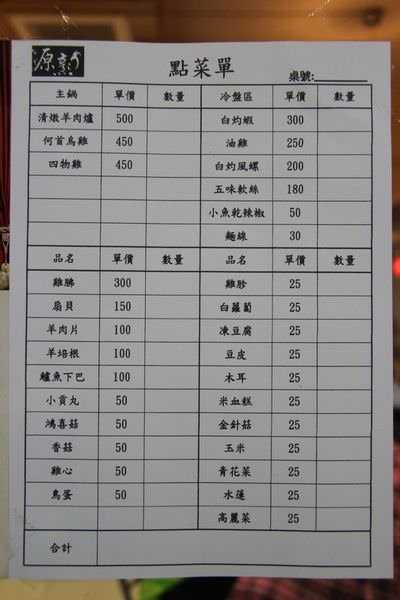 點菜單
桌號:
主鍋 單價 數量 冷盤區 單價 數量
清燉羊肉爐 500 白灼蝦 300
何首烏雞 450 油雞 250
四物雞 450 白灼風螺 200
五味軟絲 180
小魚乾辣椒 50
麵線 30
品名 單價 數量 品名 單價 數量
雞腸 300 雞胗 25
扇貝 150 白蘿蔔 25
羊肉片 100 凍豆腐 25
羊培根 100 豆皮 25
鱸魚下巴 100 木耳 25
小貢丸 50 米血糕 25
鴻喜菇 50 金針菇 25
香菇 50 玉米 25
雞心 50 青花菜 25
鳥蛋 50 水蓮 25
高麗菜 25
合計